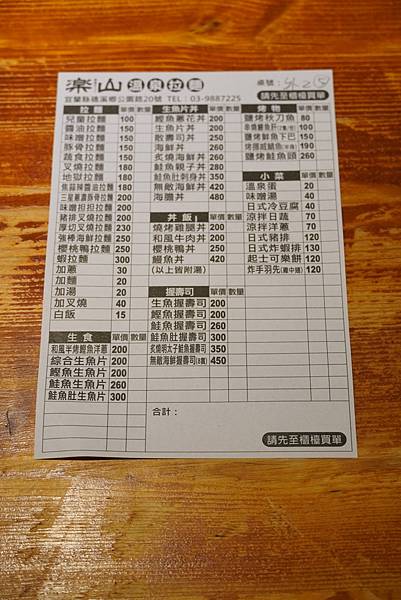 楽山 溫泉拉麵
桌號：
宜蘭縣礁溪鄉公園路20號 TEL：03-9887225
請先至櫃檯買單
拉麵 單價 數量
兒童拉麵 100
醬油拉麵 150
味噌拉麵 150
豚骨拉麵 150
蔬食拉麵 150
叉燒拉麵 180
地獄拉麵 180
焦蒜辣醬油拉麵 180
三星蔥濃豚骨拉麵 200
味噌担担拉麵 200
豬排叉燒拉麵 200
厚切叉燒拉麵 230
強棒海鮮拉麵 250
櫻桃鴨拉麵 250
蝦拉麵 300
加蔥 30
加麵 20
加湯 20
加叉燒 40
白飯 15
生食 單價 數量
和風半烤鰹魚洋蔥 200
綜合生魚片 200
鰹魚生魚片 200
鮭魚生魚片 260
鮭魚肚生魚片 300
生魚片丼 單價 數量
鰹魚蔥花丼 200
生魚片丼 200
散壽司丼 200
海鮮丼 260
炙燒海鮮丼 260
鮭魚親子丼 280
鮭魚肚刺身丼 350
無敵海鮮丼 420
海膽丼 480
丼飯 單價 數量
燒烤雞腿丼 200
和風牛肉丼 200
櫻桃鴨丼 250
鰻魚丼 420
(以上皆附湯)
握壽司 單價 數量
生魚握壽司 200
鰹魚握壽司 200
鮭魚握壽司 260
鮭魚肚握壽司 300
炙燒明太子鮭魚握壽司 350
無敵海鮮握壽司 450
合計：
烤物 單價 數量
鹽烤秋刀魚 80
100
鹽烤鮭魚下巴 150
烤挪威鯖魚 190
鹽烤鮭魚頭 260
小菜 單價 數量
溫泉蛋 20
味噌湯 40
日式冷豆腐 40
涼拌日蔬 70
涼拌洋蔥 70
日式豬排 120
日式炸蝦排 130
起士可樂餅 120
炸手羽先(雞中翅) 120
請先至櫃檯買單